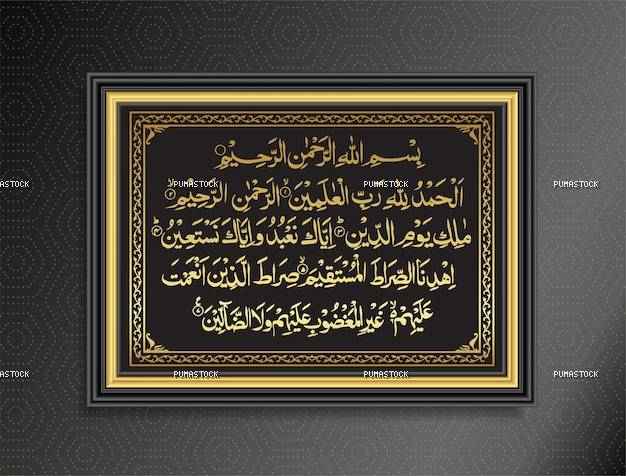 بِسْمِ اللهِ الرَّحْمٰنِ الرَّحِيْمِ
اَلْحَمْدُ لِلّٰهِ رَبِّ الْعٰلَمِيْنَ ۙ﴿۱﴾ الرَّحْمٰنِ الرَّحِيْمِ ۙ﴿۲﴾
مٰلِكِ يَوْمِ الدِّيْنِ ؕ﴿۳﴾ اِيَّاكَ نَعْبُدُ وَاِيَّاكَ نَسْتَعِيْنُ ؕ﴿۴﴾
اِهْدِنَا الصِّرَاطَ الْمُسْتَقِيْمَ ۙ﴿۵﴾ صِرَاطَ الَّذِيْنَ اَنْعَمْتَ
عَلَيْهِمْ ۙ۬ غَيْرِ الْمَغْضُوْبِ عَلَيْهِمْ وَلَا الضَّآلِّيْنَ
PUMASTOCK PUMASTOCK PUMASTOCK
PUMASTOCK PUMASTOCK PUMASTOCK